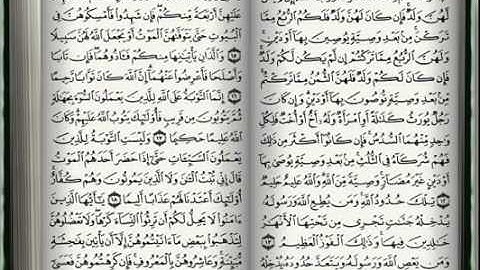 لَهُنَّ وَلَدٌ فَإِن كَانَ لَهُنَّ وَلَدٌ فَلَكُمُ ٱلرُّبُعُ مِمَّا
تَرَكْنَ مِنۢ بَعْدِ وَصِيَّةٍ يُوصِينَ بِهَآ أَوْ دَيْنٍ
وَلَهُنَّ ٱلرُّبُعُ مِمَّا تَرَكْتُمْ إِن لَّمْ يَكُن لَّكُمْ وَلَدٌ
فَإِن كَانَ لَكُمْ وَلَدٌ فَلَهُنَّ ٱلثُّمُنُ مِمَّا تَرَكْتُم
مِّنۢ بَعْدِ وَصِيَّةٍ تُوصُونَ بِهَآ أَوْ دَيْنٍ وَإِن كَانَ
رَجُلٌ يُورَثُ كَلَٰلَةً أَوِ ٱمْرَأَةٌ وَلَهُۥٓ أَخٌ أَوْ أُخْتٌ فَلِكُلِّ
وَٰحِدٍ مِّنْهُمَا ٱلسُّدُسُ فَإِن كَانُوٓا۟ أَكْثَرَ مِن ذَٰلِكَ
فَهُمْ شُرَكَآءُ فِى ٱلثُّلُثِ مِنۢ بَعْدِ وَصِيَّةٍ يُوصَىٰ بِهَآ
أَوْ دَيْنٍ غَيْرَ مُضَآرٍّ وَصِيَّةً مِّنَ ٱللَّهِ وَٱللَّهُ عَلِيمٌ حَلِيمٌ
١٢ تِلْكَ حُدُودُ ٱللَّهِ وَمَن يُطِعِ ٱللَّهَ وَرَسُولَهُۥ
يُدْخِلْهُ جَنَّٰتٍ تَجْرِى مِن تَحْتِهَا ٱلْأَنْهَٰرُ
خَٰلِدِينَ فِيهَا وَذَٰلِكَ ٱلْفَوْزُ ٱلْعَظِيمُ ١٣
وَمَن يَعْصِ ٱللَّهَ وَرَسُولَهُۥ وَيَتَعَدَّ حُدُودَهُۥ يُدْخِلْهُ
عَلَيْهِنَّ أَرْبَعَةً مِّنكُمْ فَإِن شَهِدُوا۟ فَأَمْسِكُوهُنَّ فِى
ٱلْبُيُوتِ حَتَّىٰ يَتَوَفَّىٰهُنَّ ٱلْمَوْتُ أَوْ يَجْعَلَ ٱللَّهُ لَهُنَّ سَبِيلًا
١٥ وَٱلَّذَانِ يَأْتِيَٰنِهَا مِنكُمْ فَـَٔاذُوهُمَا فَإِن تَابَا
وَأَصْلَحَا فَأَعْرِضُوا۟ عَنْهُمَآ إِنَّ ٱللَّهَ كَانَ تَوَّابًا رَّحِيمًا
١٦ إِنَّمَا ٱلتَّوْبَةُ عَلَى ٱللَّهِ لِلَّذِينَ يَعْمَلُونَ ٱلسُّوٓءَ بِجَهَٰلَةٍ
ثُمَّ يَتُوبُونَ مِن قَرِيبٍ فَأُو۟لَٰٓئِكَ يَتُوبُ ٱللَّهُ عَلَيْهِمْ وَكَانَ
ٱللَّهُ عَلِيمًا حَكِيمًا ١٧ وَلَيْسَتِ ٱلتَّوْبَةُ لِلَّذِينَ
يَعْمَلُونَ ٱلسَّيِّـَٔاتِ حَتَّىٰٓ إِذَا حَضَرَ أَحَدَهُمُ ٱلْمَوْتُ
قَالَ إِنِّى تُبْتُ ٱلْـَٰٔنَ وَلَا ٱلَّذِينَ يَمُوتُونَ وَهُمْ كُفَّارٌ
أُو۟لَٰٓئِكَ أَعْتَدْنَا لَهُمْ عَذَابًا أَلِيمًا ١٨ يَٰٓأَيُّهَا ٱلَّذِينَ
ءَامَنُوا۟ لَا يَحِلُّ لَكُمْ أَن تَرِثُوا۟ ٱلنِّسَآءَ كَرْهًا وَلَا تَعْضُلُوهُنَّ
لِتَذْهَبُوا۟ بِبَعْضِ مَآ ءَاتَيْتُمُوهُنَّ إِلَّآ أَن يَأْتِينَ بِفَٰحِشَةٍ
مُّبَيِّنَةٍ وَعَاشِرُوهُنَّ بِٱلْمَعْرُوفِ فَإِن كَرِهْتُمُوهُنَّ فَعَسَىٰٓ